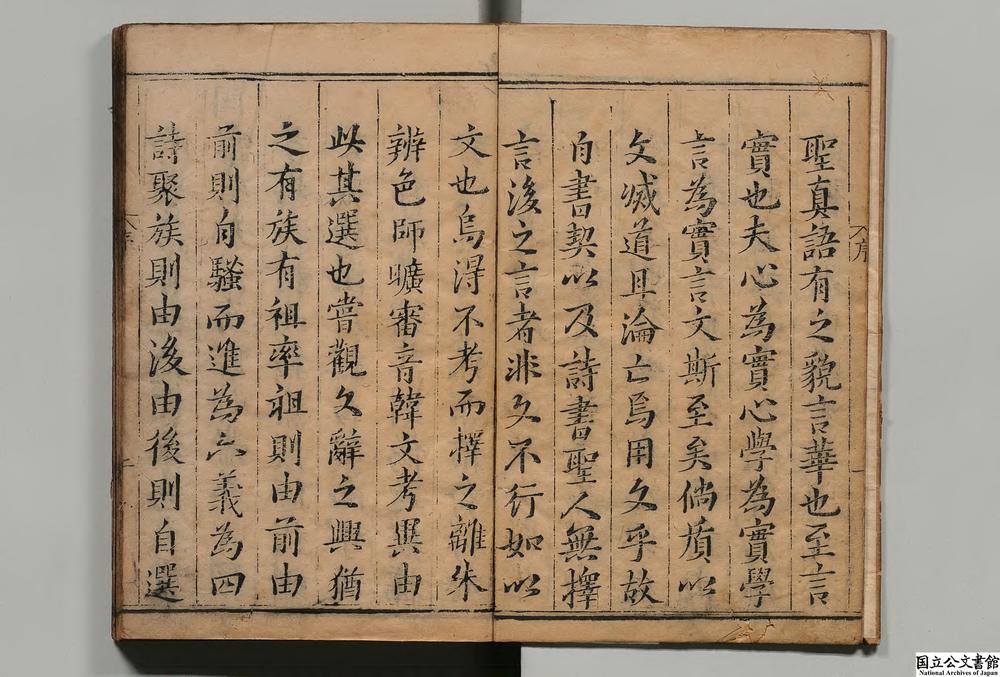 聖真語有之貌言華也至言
實也夫心為實心學為實學
言為實言文斯至矣倘質以
文滅道且淪亡焉用文乎故
自書契以及詩書聖人無擇
言後之言者非文不行如以
文也烏得不考而擇之離朱
辨色師曠審音韓文考異由
此其選也嘗觀文辭之興猶
之有族有祖率祖則由前由
前則自騷而進為六義為四
詩聚族則由後由後則自選
国立公文書館
National Archives of Japan